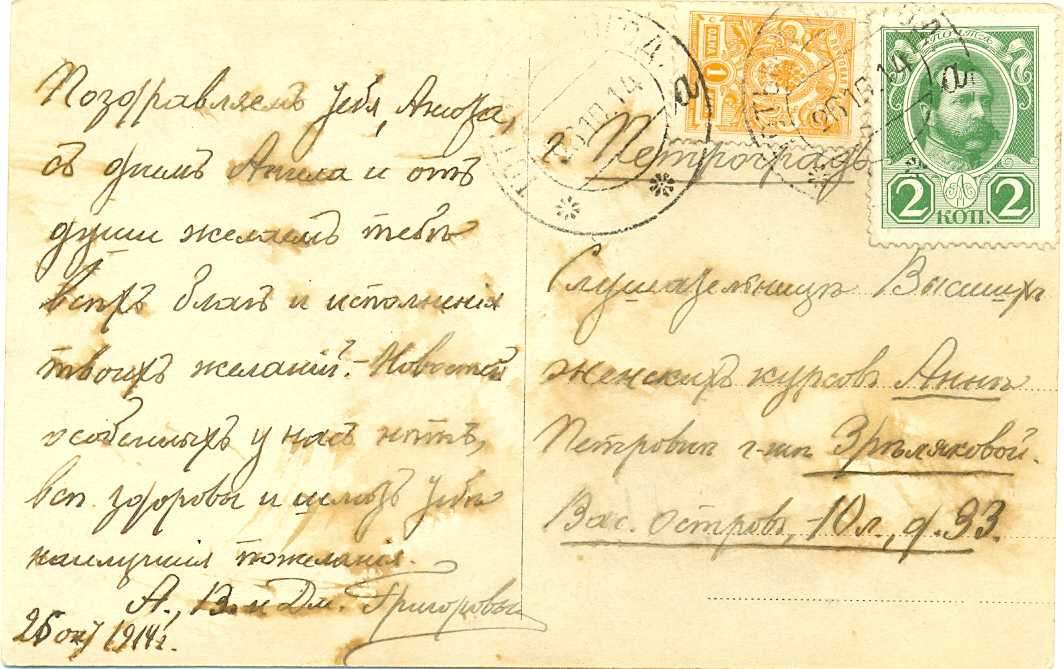 Поздравляемъ тебя, Анюта,
съ днемъ Ангела и отъ
души желаемъ тебѣ
всѣхъ благъ и исполненія
твоихъ желаній. – Новостей
особенныхъ у насъ нѣтъ,
всѣ здоровы и шлютъ тебѣ
наилучшія пожеланія.
А., В. и Дм. Григоровы
26 окт 1914 г.
Петроградъ
Слушательницѣ Высшихъ
женскихъ курсовъ Аннѣ
Петровнѣ г-жѣ Зрѣляковой.
Вас. Островъ, 10 л., д. 33.
1
ОДНА
26 10 14
а
26 10 14
а
ПОЧТА
2 КОП. 2